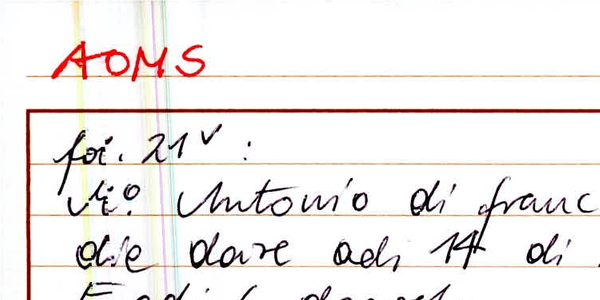 AOMS
foi. 21v :
Mo. Antonio di franc
die dare adi 14 di